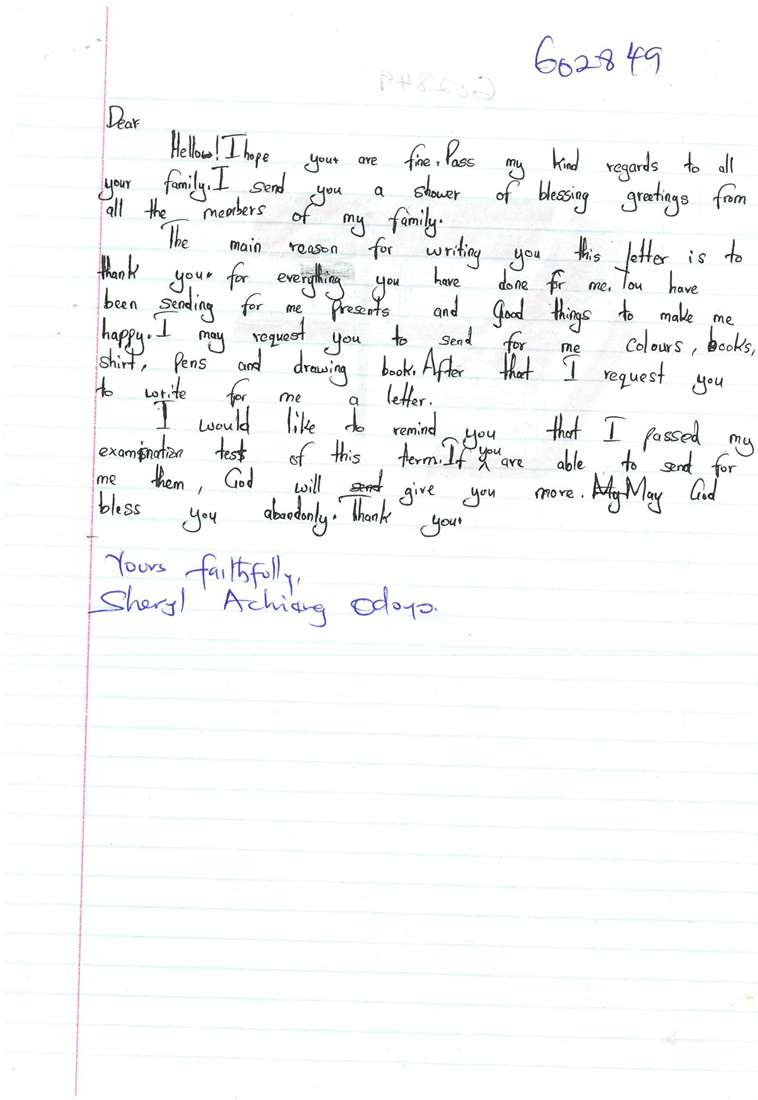 602849
Dear
Hellow! I hope you are fine. Pass my kind regards to all
your family. I send you a shower of blessing greetings from
all the members of my family.
The main reason for writing you this letter is to
thank you for everything you have done for me. You have
been sending for me presents and good things to make me
happy. I may request you to send for me colours, books,
shirt, pens and drawing book. After that I request you
to write for me a letter.
I would like to remind you that I passed my
examination tests of this term. If you are able to send for
me them, God will send give you more. My May God
bless you abandonly. Thank you.
Yours faithfully,
Sheryl Achieng Odoyo.